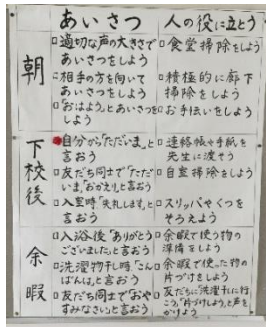 あいさつ 人の役に立とう
朝
□適切な声の大きさで
あいさつをしよう
□相手の方を向いて
あいさつをしよう
□「おはよう」とあいさつを
しよう
□食堂掃除をしよう
□積極的に廊下
掃除をしよう
□お手伝いをしよう
下校後
自分から「ただいま」と
言おう
□友だち同士で「ただ
いま」「おかえり」と言おう
□入室時「失礼します」と
言おう
□連絡帳や手紙を
先生に渡そう
□自室掃除しよう
□スリッパやくつを
そろえよう
余暇
□入浴後「ありがとう
ございました」と言おう
□洗濯物干し時「こん
ばんは」と言おう
□友だち同士で「おや
すみなさい」と言おう
□余暇で使う物の
準備をしよう
□余暇で使った物の
片づけをしよう
□友だちに「洗濯干しに行
こう」「片づけしよう」と声を
かけよう